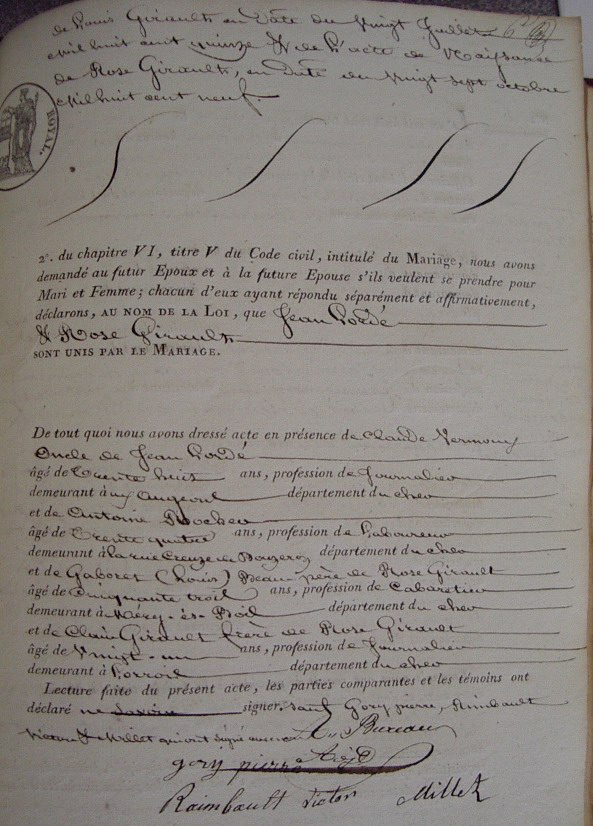 de Louis Girault en date du vingt Juillet
mil huit cent quinze & de l'acte de Naissance
de Rose Girault, en date du vingt sept octobre
mil huit cent neuf.
ROYAL.
2°. du chapitre VI, titre V du Code civil, intitulé du Mariage, nous avons
demandé au futur Epoux et à la future Epouse s'ils veulent se prendre pour
Mari et Femme; chacun d'eux ayant répondu séparément et affirmativement,
déclarons, AU NOM DE LA LOI, que Jean Lordé
& Rose Girault
SONT UNIS PAR LE MARIAGE.
De tout quoi nous avons dressé acte en présence de Claude
Oncle de Jean Lordé
âgé de trente huit ans, profession de Journalier
demeurant à département du cher
et de Antoine Rocher
âgé de trente quatre ans, profession de Laboureur
demeurant à la rue département du cher
et de Gaboret (Louis) Beau père de Rose Girault
âgé de cinquante trois ans, profession de Cabaretier
demeurant à Méry-ès-Bois département du cher
et de Girault frère de Rose Girault
âgé de vingt-un ans, profession de Journalier
demeurant à département du cher
Lecture faite du présent acte, les parties comparantes et les témoins ont
déclaré ne savoir signer. sauf Gory pierre, Rimbault
victor & Millet qui ont signé avec nous Bureau
gory pierre
Raimbault Victor Millet